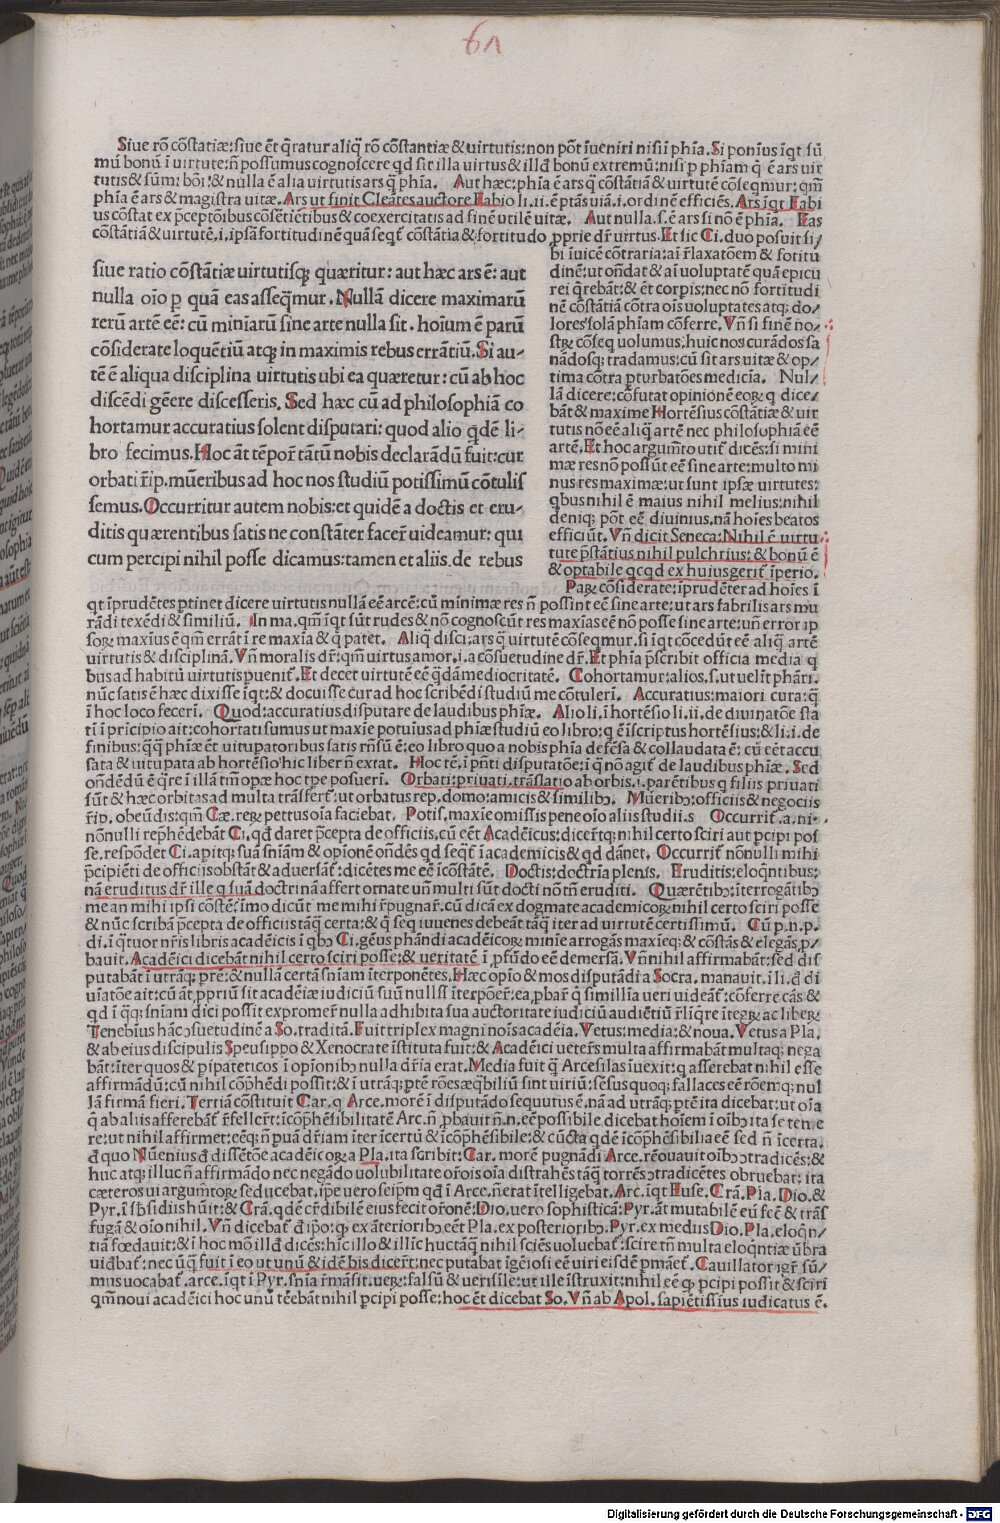 61
Siue rō cōstatiæ: siue ēt q̄ratur aliq̄ rō cōstantiæ & uirtutis: non pōt īueniri nisi ī phīa. Si poniṁus īqt sū
mū bonū ī uirtute: n̄ possumus cognoscere qd sit illa uirtus & illd bonū extremū: nisi p phīam q̄ ē ars uir
tutis & sūmi bōi: & nulla ē alia uirtutis ars q̄ phīa. Aut hæc: phīa ē ars q̄ cōstātiā & uirtutē cōseq̄mur: qm̄
phīa ē ars & magistra uitæ. Ars ut finit Cleātes auctore Fabio li. ii. ē ptās uiā .i. ordinē efficiēs. Ars īqt Fabi
us cōstat ex p̄ceptōibus cōsētiētibus & coexercitatis ad finē utilē uitæ. Aut nulla .s. ē ars si nō ē phīa. Eas
cōstātiā & uirtutē .i. ipsā fortitudinē quā seqt̄ cōstātia & fortitudo p̱prie dr̄ uirtus. Et sic Ci. duo posuit si/
bi īuicē cōtraria: aī r̄laxatōem & fotitu
dinē: ut oñdat & aī uoluptatē quā epicu
rei q̄rebāt: & ēt corpis: nec nō fortitudi
nē cōstātiā cōtra oīs uoluptates atq; do/
lores solā phīam cōferre. Vn̄ si finē no/
stꝝ cōseq uolumus: huic nos curādos sa
nādosq; tradamus: cū sit ars uitæ & op/
tima cōtra p̱turbatōes medicīa. Nul/
lā dicere: cōfutat opinionē eoꝝ q dice/
bāt & maxime Hortēsius cōstātiæ & uir
tutis nō eē aliq̄ artē nec philosophiā eē
artē. Et hoc argum̄to utit̄ dicēs: si mini
mæ res nō possūt eē sine arte: multo mi
nus res maximæ: ut sunt ipsæ uirtutes:
qbus nihil ē maius nihil melius: nihil
deniq; pōt eē diuinius. nā hoīes beatos
efficiūt. Vn̄ dicit Seneca: Nihil ē uirtu/
tute p̄stātius nihil pulchrius: & bonū ē
& optabile qcqd ex huius gerit̄ īperio.
siue ratio cōstātiæ uirtutisq; quæritur: aut hæc ars ē: aut
nulla oīo p quā eas asseq̄mur. Nullā dicere maximarū
rerū artē eē: cū miniarū sine arte nulla sit. hoīum ē parū
cōsiderate loquētiū atq; in maximis rebus errātiū. Si au-
tē ē aliqua disciplina uirtutis ubi ea quæretur: cū ab hoc
discēdi gēere discesseris. Sed hæc cū ad philosophiā co
hortamur accuratius solent disputari: quod alio q̄dē li-
bro fecimus. Hoc āt tēpor̄ tātū nobis declarādū fuit: cur
orbati r̄ip. mūeribus ad hoc nos studiū potissimū cōtulis
semus. Occurritur autem nobis: et quidē a doctis et eru-
ditis quærentibus satis ne constāter facer̄ uideamur: qui
cum percipi nihil posse dicamus: tamen et aliis de rebus
Paꝝ cōsiderate: īprudēter ad hoīes ī
qt īprudētes ptinet dicere uirtutis nullā eē arcē: cū minimæ res n̄ possint eē sine arte: ut ars fabrilis ars mu
rādi texēdi & similiū. In ma. qm̄ īqt sūt rudes & nō cognoscūt res maxīas eē nō posse sine arte: un̄ error ip
soꝝ maxīus ē qm̄ errāt ī re maxīa & q̄ patet. Aliq̄ disci: ars q̄ uirtutē cōseq̄mur. si īqt cōcedūt eē aliq̄ artē
uirtutis & disciplinā. Vn̄ moralis dr̄: qm̄ uirtus amor .i. a cōsuetudine dr̄. Et phīa p̄scribit officia media q
bus ad habitū uirtutis puenit̄. Et decet uirtutē eē q̄dā mediocritatē. Cohortamur: alios .s. ut uelīt phāri.
nūc satis ē hæc dixisse īqt: & docuisse cur ad hoc scribēdi studiū me cōtulerī. Accuratius: maiori cura: q̄
ī hoc loco fecerī. Quod: accuratius disputare de laudibus phīæ. Alio li. ī hortēsio li. ii. de diuinatōe sta
tī ī pricīpio ait: cohortati sumus ut maxīe potuīus ad phīæ studiū eo libro: q ē īscriptus hortēsius: & li. i. de
finibus: q̄q̄ phīæ ēt uituꝑatoribus satis rn̄sū ē: eo libro quo a nobis phīa defēsa & collaudata ē: cū cēt accu
sata & uituꝑata ab hortēsio hic liber n̄ extat. Hoc tē. ī pn̄ti disputatōe: ī q̄ nō agit̄ de laudibus phīæ. Sed
ondēdū ē q̄re ī illā tm̄ opæ hoc tp̄e posuerī. Orbati: priuati. trāslatio ab orbis .i. parētibus q filiis priuati
sūt & hæc orbitas ad multa trāsfert̄: ut orbatus rep. domo: amicis & similibꝫ. Mūeribꝫ: officiis & negociis
r̄ip. obeūdis: qm̄ Cæ. reꝝ pettus oīa faciebat. Potis. maxīe omissis pene oīo aliis studii.s Occurrit̄ .a. ni-
nōnulli reprehēdebāt Ci. qd daret p̄cepta de officiis. cū eēt Acadēicus: dicer̄tq; nihil certo sciri aut pcipi pos
se. respōdet Ci. apitq; suā sniām & opionē oñdēs qd seqt̄ ī academicis & qd dānet. Occurrit̄ nōnulli mihi
p̄cipiēti de officiis obstāt & aduersāt̄: dicētes me eē īcōstātē. Doctis: doctrīa plenis. Eruditis: eloq̄ntibus:
nā eruditus dr̄ ille q suā doctrinā affert ornate un̄ multi sūt docti nō tm̄ eruditi. Quærētibꝫ: īterrogātibꝫ
me an mihi ipsi cōstē: īmo dicūt me mihi r̄pugnar̄. cū dicā ex dogmate academicoꝝ nihil certo sciri posse
& nūc scribā p̄cepta de officiis tāq̄ certa: & q̄ seq iuuenes debeāt tāq̄ iter ad uirtutē certissimū. Cū p.n.p.
di. ī q̄tuor nr̄is libris acadēicis ī qbꝫ Ci. gēus phāndi acadēicoꝝ minīe arrogās maxīeq; & cōstās & elegās p̱/
bauit. Acadēici dicebāt nihil certo sciri posse: & ueritatē ī pfūdo eē demersā. Vn̄ nihil affirmabāt: sed dis
putabāt ī utrāq; prē: & nullā certā sniām īterponētes. Hæc opio & mos disputādi a Socra. manauit. ī li. d̄ di
uīatōe ait: cū āt p̱priū sit acadēiæ iudiciū suū nullū īterpōer̄: ea p̱bar̄ q̄ simillīa ueri uideāt̄: cōferre cās &
qd ī q̄q; sniam dici possit expromer̄ nulla adhibita sua auctoritate iudiciū audiētiū r̄liqre īteꝝ ac libeꝝ
Tenebīus hāc ɔsuetudinē a So. traditā. Fuit triplex magni noīs acadēia. Vetus: media: & noua. Vetus a Pla.
& ab eius discipulis Speusippo & Xenocrate īstituta fuit: & Acadēici ueter̄s multa affirmabāt multaq; nega
bāt: īter quos & pipateticos ī opionibꝫ nulla dr̄ia erat. Media fuit q̄ Arcesilas īuexit: q asserebat nihil esse
affirmādū: cū nihil cōphēdi possit: & ī utrāq; ptē rōes æq̄biliū sint uiriū: sēsus quoq; fallaces eē rōemq; nul
lā firmā fieri. Tertiā cōstituit Car. q Arce. morē ī disputādo sequutus ē. nā ad utrāq; ptē ita dicebat: ut oīa
q̄ ab aliis afferebāt̄ r̄fellert̄: īcōphēsibilitatē Arc. n̄ p̱bauit n̄.n. eē possibile dicebat hoīem ī oībꝫ ita se tene
re: ut nihil affirmet: eēq; n̄ puā dr̄iam īter īcertū & īcōphēsibile: & cūcta qdē īcōphēsibilia eē sed n̄ īcerta.
d̄ quo Nūenius d̄ dissētōe acadēicoꝝ a Pla. ita scribit: Car. morē pugnādi Arce. rēouauit oībꝫ ɔtradicēs: &
huc atq; illuc n̄ affirmādo nec negādo uolubilitate orōis oīa distrahēs tāq̄ torrēs ɔtradicētes obruebat: ita
cæteros ui argum̄toꝝ seducebat. īpe uero seipm̄ qd ī Arce. n̄ erat ītelligebat. Arc. īqt Euse. Crā. Pla. Dio. &
Pyr. ī sbsidiis hūit: & Crā. qdē cr̄dibilē eius fecit orōnē: Dio. uero sophisticā: Pyr. āt mutabilē eū fec̄ & trās
fugā & oīo nihil. Vn̄ dicebat̄ d̄ ipo: q; ex āterioribꝫ eēt Pla. ex posterioribꝫ Pyr. ex mediis Dio. Pla. eloq̄n/
tiā fœdauit: & ī hoc mō illd̄ dicēs: hīc illo & illīc huc tāq̄ nihil sciēs uoluebat̄: scire tn̄ multa eloqntiæ ūbra
uidbat̄: nec ūq̄ fuit ī eo ut unū & idē bis dicer̄t: nec putabat īgēiosi eē uiri eisdē pmāet̄. Cauillator igr̄ sū/
mus uocabat̄. arce. īqt ī Pyr. snīa r̄māsit. ueꝝ: falsū & uerisīle: ut ille īstruxit: nihil eē q; pcipi possit & sciri
qm̄ noui acadēici hoc unū tēebāt nihil pcipi posse: hoc ēt dicebat So. Vn̄ ab Apol. sapiētissius iudicatus ē.
Digitalisierung gefördert durch die Deutsche Forschungsgemeinschaft - DFG